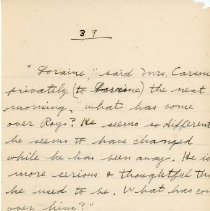 39
"Loraine," said Mrs. Carson
privately (to Loraine) the next
morning, "what has come
over Roy? He seems so different
he seems to have changed
while he has been away. He is
more serious & thoughtful than
he used to be. What has co
over him?"